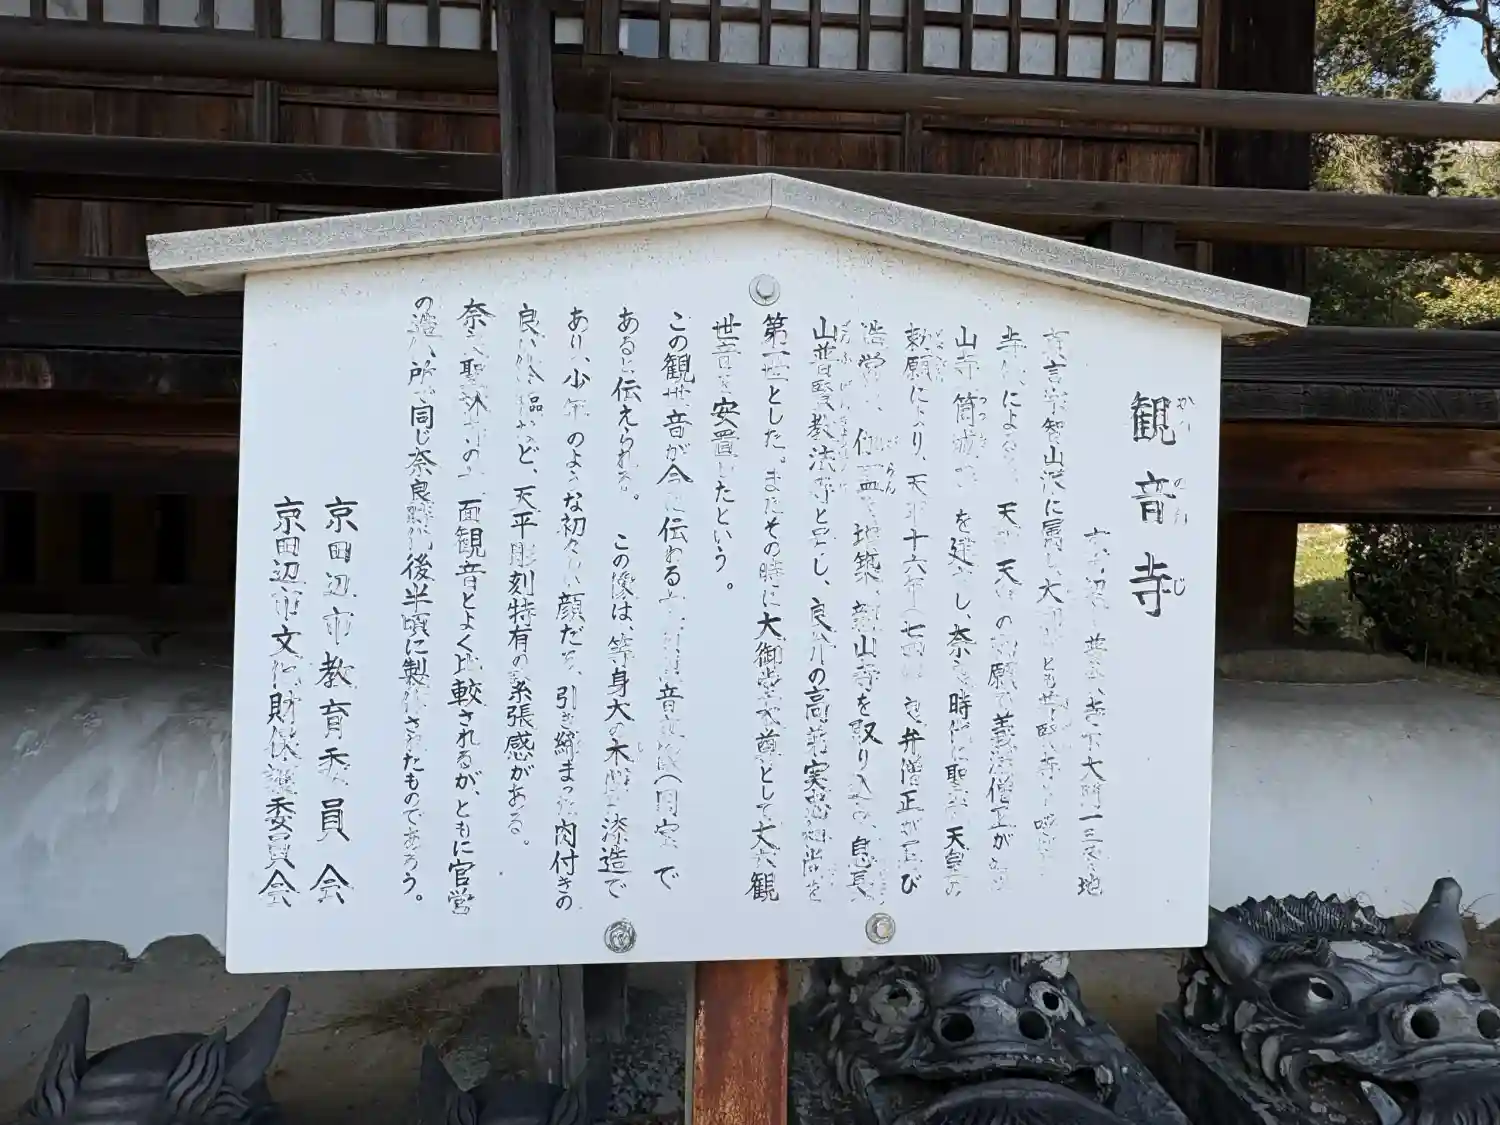 観音寺
かん のん じ
京田辺市普賢寺下大門一三番地
真言宗智山派に属し、大御堂とも普賢寺とも呼ぶ
寺伝による 天武天皇の勅願で義淵僧正が
山寺(筒城 を建立し、奈良時代に聖武天皇の
勅願により、天平十六年(七四四 良弁僧正が再び
伽藍を 地築、新山寺を取り込 息長
山普賢教法寺と号し、良弁の高弟実忠和尚を
第一世とした。またその時に大御堂本尊として丈六観
世音を安置したという。
この観世音が今に伝わる十一面観音立像(国宝)で
あると伝えられる。この像は、等身大の木心乾漆造で
あり、少年のような初々しい顔だち、引き締まった肉付きの
良い体 など、天平彫刻特有の緊張感がある。
奈良聖林寺の十一面観音とよく比較されるが、ともに官営
の造仏所で同じ奈良時代後半頃に製作されたものであろう。
京田辺市教育委員会
京田辺市文化財保護委員会